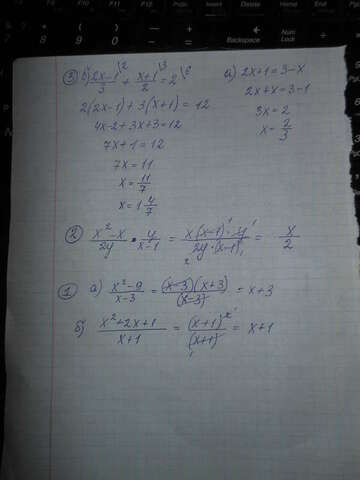 ③ б) \frac{2x-1}{3}^{\2} + \frac{x+1}{2}^{\3} = 2^{\6}
2(2x-1)+3(x+1)=12
4x-2+3x+3=12
7x+1=12
7x=11
x=\frac{11}{7}
x=1\frac{4}{7}
а) 2x+1=3-x
2x+x=3-1
3x=2
x=\frac{2}{3}
② \frac{x^2-x}{2y} \cdot \frac{y}{x-1} = \frac{x(x-1) \cdot y}{2y \cdot (x-1)} = \frac{x}{2}
① а) \frac{x^2-9}{x-3} = \frac{(x-3)(x+3)}{(x-3)} = x+3
б) \frac{x^2+2x+1}{x+1} = \frac{(x+1)^2}{(x+1)} = x+1
Backspace
Num
Lock
Enter